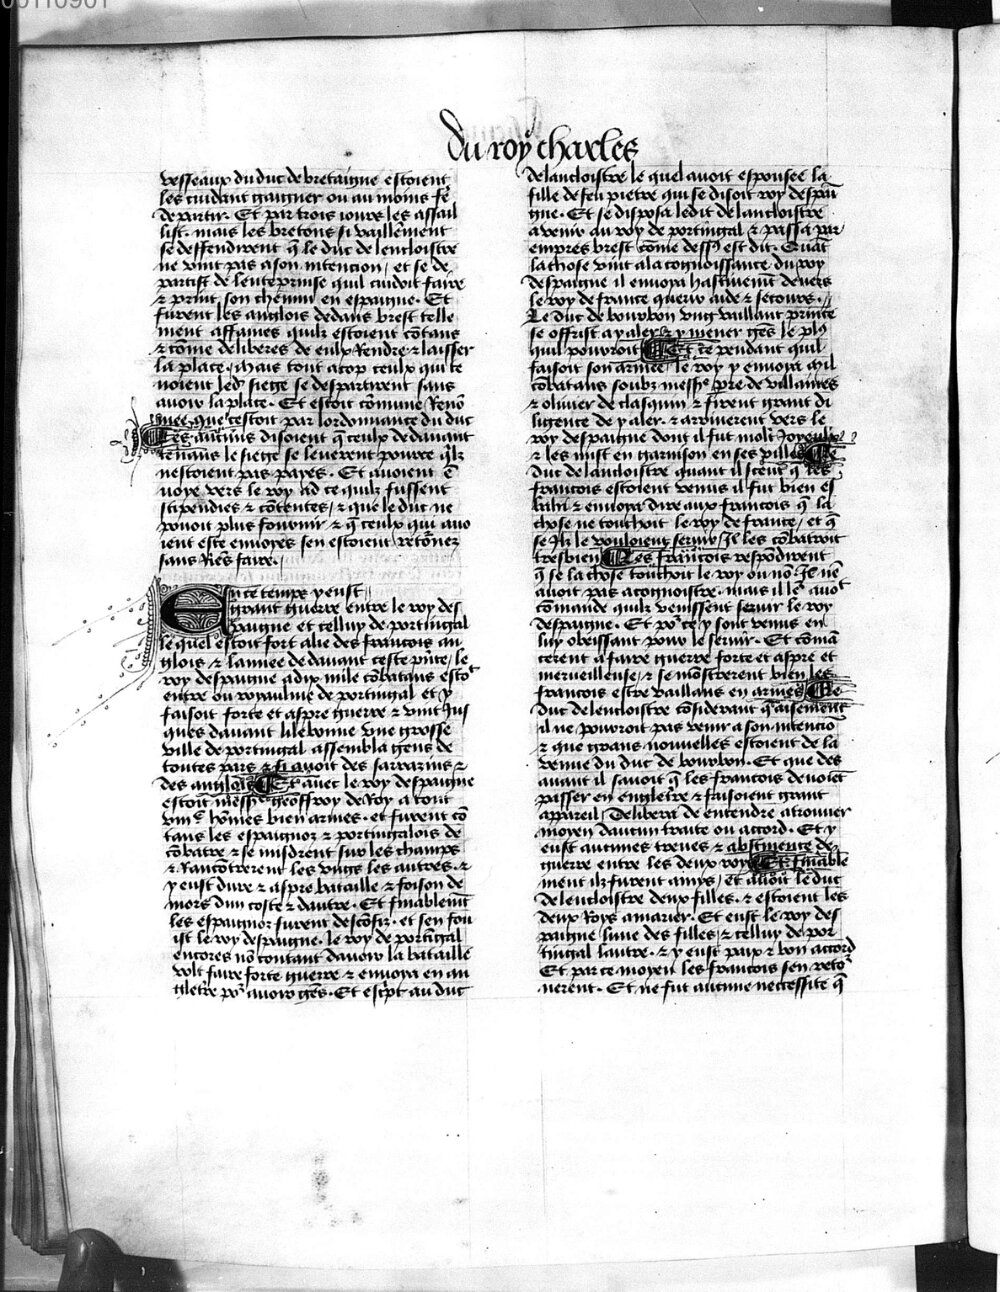 du roy charles
vesseaux du duc de bretaigne estoient
les cuidant gaigner ou au moins fe͂
departir. Et par trois iours les assail
list. mais les bretons si vaillement
se deffendirent q̄ le duc de lencloistre
ne vint pas a son intencion / et se de
partist de lentreprinse quil cuidoit faire
⁊ print son chemin en espaigne. Et
furent les anglois dedans brest telle
ment affames quilz estoient cōtans
⁊ cōme deliberes de eulx Rendre ⁊ laisser
la place. mais tout acop ceulx qui te
noient led̄ siege se despartirent sans
auoir la place. Et estoit cōmune Renō
mee que cestoit par lordonnance du duc
Les aucūns disoient q̄ ceulx de dauant
tenans le siege se leuerent pource q̄lz
nestoient pas payes. Et auoient ē
uoye vers le roy ad ce quilz fussent
stipendies ⁊ cōtentes / ⁊ que le duc ne
pouoit plus fournir ⁊ q̄ ceulx qui auo
ient este enuoyes sen estoient retōnez
sans Riēs faire.
En ce temps y eust
grant guerre entre le roy des
paigne et celluy de portingal
le quel estoit fort alie des francois an
glois ⁊ lannee de dauant ceste p̄nte / le
roy despaigne a dix mile cōbatans esto
entre ou royaulme de portingal et y
faisoit forte et aspre guerre ⁊ vint jus
ques dauant lilebonne vne grosse
ville de portingal assembla gens de
toutes pars ⁊ si auoit des sarrazins ⁊
des anglois Et auec le roy despaigne
estoit mess geoffroy de Roy a tout
viiiᶜ hōmes bien armes. et furent cō
tans les espaignoz ⁊ portingalois de
cōbatre ⁊ se misdrent sur les champs
⁊ Rancōtrerent les vngs les autres. ⁊
y eust dure ⁊ aspre bataille ⁊ foison de
mors dun coste ⁊ dautre. Et finablemēt
les espaignoz furent descōfiz. et sen fou
ist le roy despaigne. le roy de portingal
encores nō contant dauoir la bataille
volt faire forte guerre ⁊ enuoya en an
gletr̄e po² auoir gēs. Et escript au duc
de lancloistre le quel auoit espousee la
fille de feu pietre qui se disoit roy despai
gne. Et se disposa ledit de lancloistre
a venir au roy de portingal ⁊ passa par
empres brest cōme dess² est dit. Quāt
la chose vint a la cognoissance du roy
despaigne il enuoya hastiuemēt deuers
le roy de france querir aide ⁊ secours.
Le duc de bourbon vng vaillant prince
se offrist a y aler ⁊ y mener gēs le pl²
quil pourroit Et ce pendant quil
faisoit son armee le roy y enuoya mil
cōbatans soubz mess pre de villaines
⁊ oliuier de clasquin ⁊ firent grant di
ligence de y aler. ⁊ arriuerent vers le
roy despaigne dont il fut molt Joyeulx
⁊ les mist en garnison en ses villes Le
duc de lancloistre quant il sceut q̄ les
francois estoient venus il fut bien es
bahi ⁊ enuoya dire aux francois q̄ la
chose ne touchoit le roy de france / et q̄
se Ilz le vouloient seruir / Il les cōbatroit
tresbien Les francois respōdirent
q̄ se la chose touchoit le roy ou nō. Il nē
auoit pas a cognoistre. mais il lē auoit
cōmande quilz venissent seruir le roy
despaigne. Et po² ce y sont venus en
luy obeissant pour le seruir. Et cōmā
cerent a faire guerre forte et aspre et
merueilleuse / ⁊ se mōstrerent bien les
francois estre vaillans en armes Le
duc de lencloistre cōsiderant q̄ aisement
il ne pourroit pas venir a son intēcio
⁊ que grans nouuelles estoient de la
venue du duc de bourbon. Et que des
auant il sauoit q̄ les francois deuoiēt
passer en engletr̄e ⁊ faisoient grant
appareil / Delibera de entendre a trouuer
moyen daucun traite ou accord. Et y
eust aucunes treues ⁊ abstinence de
guerre entre les deux roys Et finable
ment ilz furent amys / et auoit le duc
de lencloistre deux filles. ⁊ estoient les
deux Roys a marier. Et eust le roy des
paigne lune des filles ⁊ celluy de por
tingal lautre. ⁊ y eust paix ⁊ bon accord
Et par ce moyen les francois sen reto²
nerent. Et ne fut aucune neccessite q̄